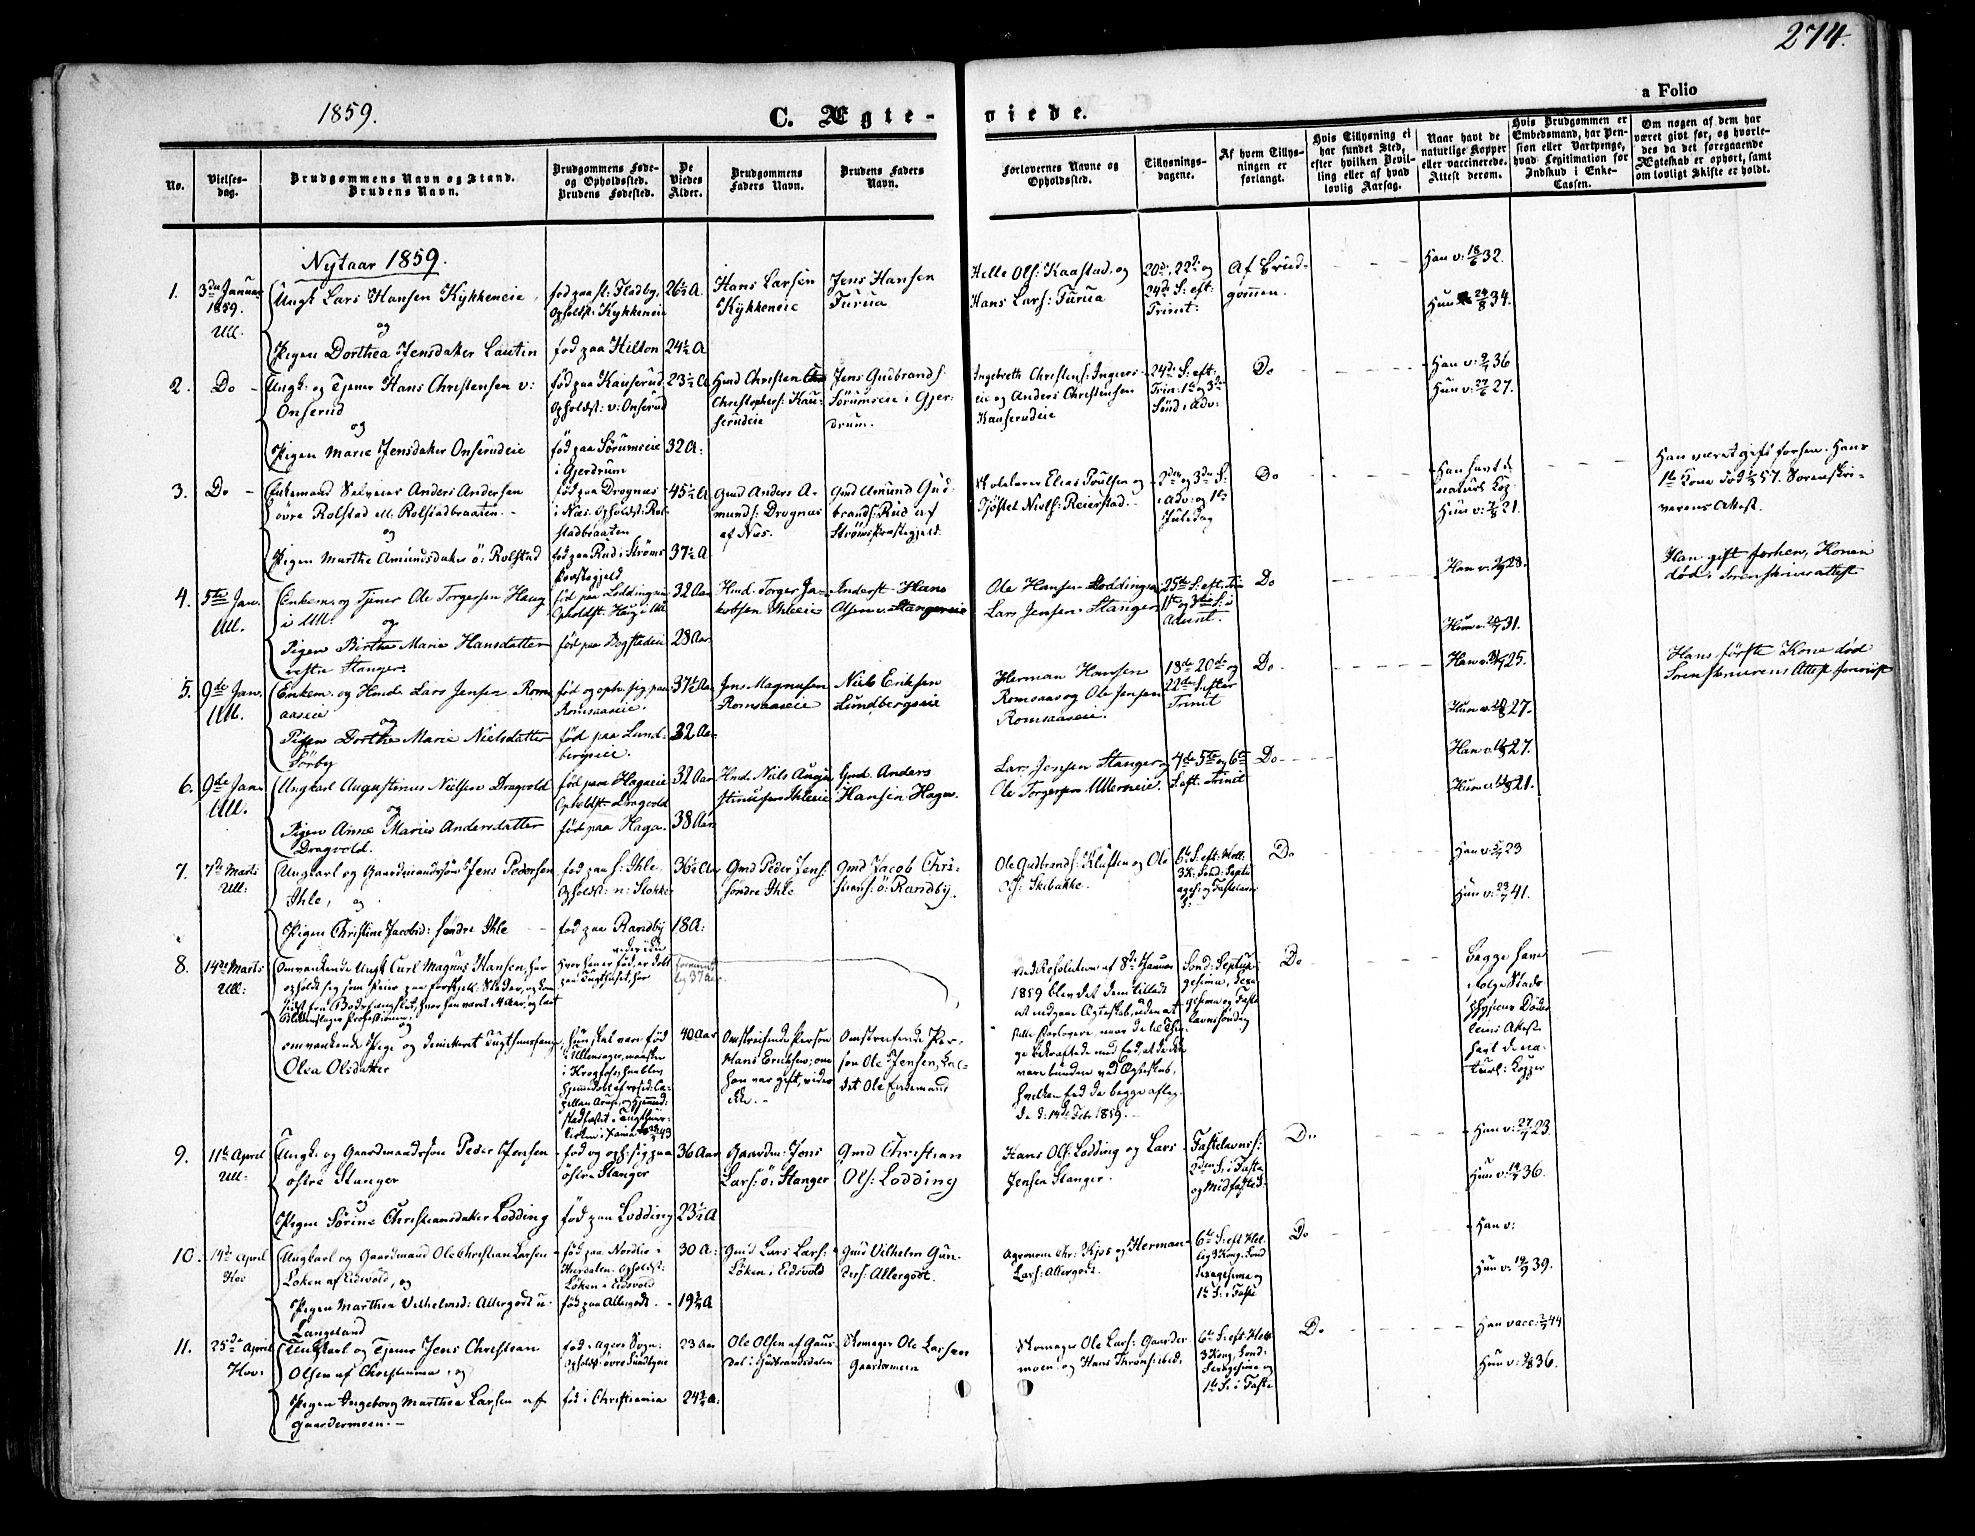 274.
a Folio
1859.
C. Ægte-
viede.
No.
Vielses-
dag.
Brudgommens Navn og Stand.
Brudens Navn.
Brudgommens Føde-
og Opholdssted.
Brudens Fødested.
De
Viedes
Alder.
Brudgommens
Faders Navn.
Brudens Faders
Navn.
Forlovernes Navne og
Opholdssted.
Tillysnings-
dagene.
Af hvem Tillys-
ningen er
forlangt.
Hvis Tillysning ei
har fundet Sted,
efter hvilken Bevil-
ling eller af hvad
lovlig Aarsag.
Naar havt de
naturlige Kopper
eller vaccinerede.
Attest derom.
Hvis Brudgommen er
Embedsmand, har Pen-
sion eller Vartpenge,
hvad Legitimation for
Indskud i Enke-
Cassen.
Om nogen af dem har
været gift før, og hvorle-
des da det foregaaende
Ægteskab er ophørt, samt
om lovligt Skifte er holdt.
Nytaar 1859.
1.
3die Januar
1859.
Ull.
Ungk. Lars Hansen Kykkeneie
og
Pigen Dorthea Jensdatter Lautin
fød paa st: Fladby,
Opholdst: Kykkeneie
fød paa Hilton
26½ A
24½ A
Hans Larsen
Kykkeneie
Jens Hansen
Turua
Helle Ols: Kaastad, og
Hans Lars: Turua
20de, 22de og
24de S: eft:
Trinit:
Af Brud-
gommen.
Han v: 18/6 32.
Hun 24/8 34.
2.
Do
Ungk: og Tjener Hans Christensen v:
Onserud
og
Pigen Marie Jensdatter Onserudeie
fød paa Kauserud
Opholdst: v: Onserud
fød paa Sørumseie
i Gjerdrum
23½ A
32 A:
Hmd Christen
Christophers: Kau-
serudeie
Jens Gudbrands:
Sørumseie i Gjer-
drum.
Ingebreth Christens: Ingiers-
eie og Anders Christensen
Kauserudeie
24de S: eft:
Trin: 1ste og 3die
Sønd i Adv:
Do
Han v: 36
Hun v: 27.
3.
Do
Enkemand Selveier Anders Andersen
øvre Rolstad ell. Rolstadbraaten.
og
Pigen Marthe Amundsdatter ø: Rolstad
fød paa Drognæs
i Næs. Opholdst: Rol-
stadbraaten
fød paa Rud i Strøms
Præstegjeld
45½ A
37½ A
Gmd Anders A-
munds: Drognæs
af Næs.
Gmd Amund Gud-
brands: Rud af
Strøms Præstegjeld
Skolelærer Elias Poulsen og
Tjøstel Niels: Reierstad.
2den og 3die S:
i Adv: og 1ste
Juledag
Do
Han havt de
naturl. Kop:
Hun v: 21.
Han været gift forhen. Hans
1ste Kone død 57. Sorenskri-
verens Attest.
4.
5te Jan.
Ull.
Enkem. og Tjener Ole Torgersen Haug
i Ull.
og
Pigen Birthe Marie Hansdatter
vestre Stanger.
fød paa Loddingen
Opholdst. Haug i Ull
fød paa Bogstadeie
32 Aar
28 Aar
Hmd. Torger Ja-
kobsen Ihleeie
Inderst Hans
Olsen v. Stangereie
Ole Hansen Loddingen
Lars Jensen Stanger
25de S: eft: Trin
1ste og 3die S: i
Advent.
Do
Han v. 28.
Hun v. 31.
Han gift forhen, Konen
død: Sorenskriverattest
5.
9de Jan.
Ull.
Enkem. og Hmd. Lars Jensen Rom-
aaseie
og
Pigen Dorthe Marie Nielsdatter
Sørby
fød og oph. sig paa
Romsaaseie.
fød paa Lund-
bergseie.
37½ Aar
32 Aar
Jens Magnusen
Romsaaseie
Niels Eriksen
Lundbergseie
Herman Hansen
Romsaas og Ole Jensen
Romsaaseie.
18de 20de og
22de S. efter
Trinit
Do
Han v. 25.
Hun v. 27.
Hans første Kone død
Sorenskriverens Attest forevist
6.
9de Jan.
Ull.
Ungkarl Augustinus Nielsen Dragvold
og
Pigen Anne Marie Andersdatter
Dragvold.
fød paa Hagaeie
Opholdst. Dragvold
fød paa Haga.
32 Aar
38 Aar
Hmd. Niels Augu-
stinusen Ihleeie
Gmd. Anders
Hansen Haga.
Lars Jensen Stanger og
Ole Torgersen Ullerneie.
4de 5te og 6te
S. eft. Trinit
Do
Han v. 27.
Hun v. 21.
7.
7de Marts
Ull:
Ungkarl og Gaardmandssøn Jens Pedersen
Ihle, og
Pigen Christine Jacobsd: søndre Ihle
fød paa s: Ihle,
Opholdst: n: Stokker
fød paa Randby
36½ A
18 A:
Gmd Peder Jens:
søndre Ihle
Gmd Jacob Chri-
stians: ø: Randby.
Ole Gudbrands: Kluften og Ole
Ols: Skibakke.
6te S: eft: Hell:
3K: Sønd: Septu-
ages: og Fastelavns
S:
Do
Han v: 23
Hun v: 23/7 41.
8.
14de Marts
Ull:
Omvankende Ungk: Carl Magnus Hansen, har
opholdt sig som Reier paa forskjell: Steder, og kom
sidst fra Bodsfængslet, hvor han været 4 Aar, og lært
Blikkenslager Professionen
og
omvankende Pige og demitteret Tugthuusfange
Olea Olsdatter
Hvor han er fød, er dolt
videre i den
paa Tugthuset, hos
Hun skal være fød
i Ullensager,
40 Aar
Omstreifende Person
Hans Eriksen; om
han var gift, vides
ikke.
Omstreifende Per-
son Ole Jensen, kal-
det Ole Enkemand
Ved Resolution af 8de Januar
1859 blev det dem tilladt
at indgaae Ægteskab, uden at
stille Forlovere, naar de til Thin-
ge bekræftede med Eed, at de ikke
vare bundne ved Ægteskab,
hvilken Eed de begge aflag-
de d: 14de Febr 1859.
Sønd: Septua-
gesima, Sexa-
gesima og Faste-
lavnssøndag
Do
Begge have
ifølge Stads-
physicus Døder-
leins Attest
havt de na-
turl: Kopper
9.
11te April
Ull:
Ungk: og Gaardmandssøn Peder Jensen
østre Stanger
og
Pigen Sørine Christiansdatter Lodding
fød og oph: sig paa
østre Stanger
fød paa Lodding
36 Aar
23½ A
Gaardm: Jens
Lars: ø: Stanger
Gmd Christian
Ols: Lodding
Hans Ols: Lodding og Lars
Jensen Stanger.
Fastelavnss:
2den S: i Faste
og Midfastes:
Do
Han v: 27/7 23.
Hun v: 36.
10.
14de April
Hov
Ungkarl og Gaardmand Ole Christian Larsen
Løken af Eidsvold, og
Pigen Marthea Vilhelmsd: Allergodt u.
Langeland
fød paa Nordlie i
Hurdalen. Opholdst:
Løken i Eidsvold
fød paa Allergodt.
30 A:
19¾ A
Gmd Lars Lars:
Løken i Eidsvold
Gmd Vilhelm Gun-
ders: Allergodt.
Agronom Chr: Kjos og Herman
Lars: Allergodt.
6te S: eft Hel-
lig 3 Kong. Sønd
Sexagesima og
1ste S: i Faste
Do
Han v:
Hun v: 39.
11.
25de April
Hov:
Ungkarl og Tjener Jens Christian
Olsen af Christiania, og
Pigen Ingeborg Marthea Larsen af
Gaardermoen.
fød i Agers Sogn:
Opholdst: øvre Sundbye
fød i Christiania
23 Aar
24¾ A:
Ole Olsen af Gaus-
dal i Gudbrandsdalen
Skomager Ole Larsen
Gaardermoen
Skomager Ole Lars: Gaarder-
moen og Hans Throns: ibid:
6te S: eft Hell
3 Kong, Sønd:
Sexagesima og
1ste S: i Faste
Do
Han vacc: 44
Hun v: 36.